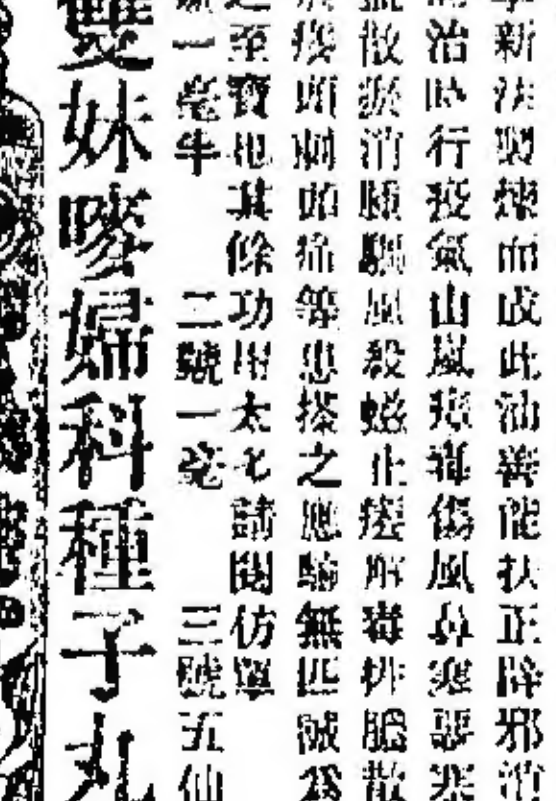 新法製煉而成此油善能扶正辟邪消
治時行疫氣山嵐瘴毒傷風鼻塞惡寒
散瘀消腫驅風殺蚊止痒解毒排膿散
痰頭刺頭痛等患搽之應驗無匹誠為
至寶也其餘功用太多請閱仿單
一毫半 二號一毫 三號五仙
雙妹嘜婦科種子丸